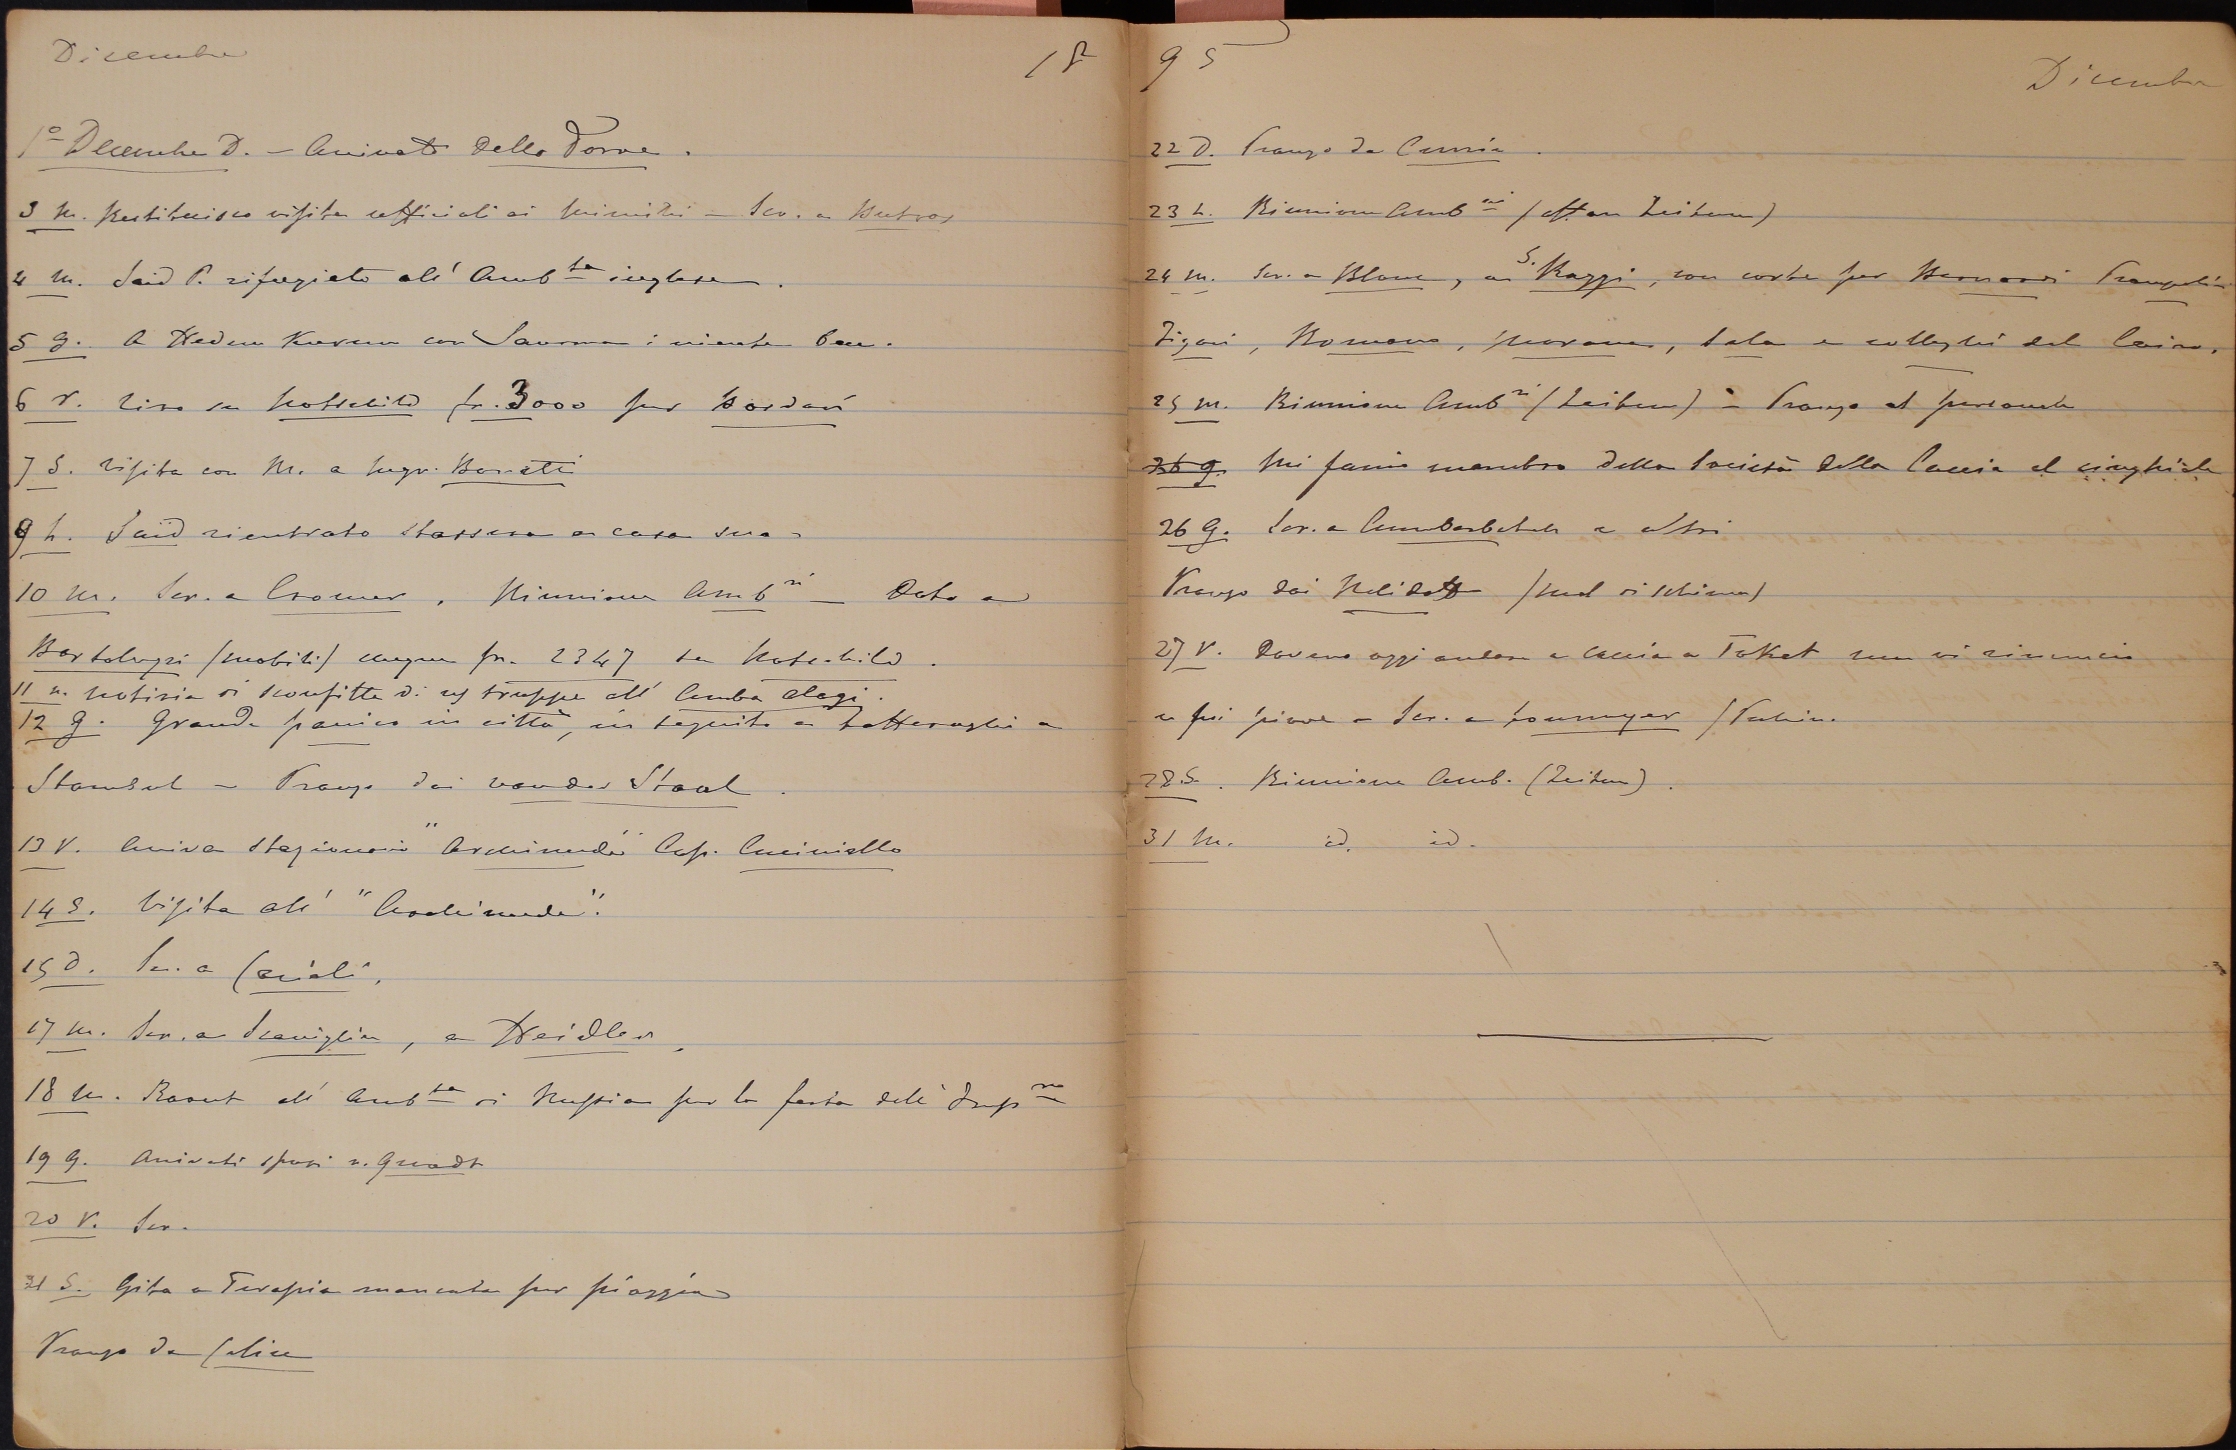 Dicembre
18
1º Decembre D. - Arrivato Della Torre.
3 M. Restituisco visite ufficiali ai ministri - Scr. a Butros
4 M. Said P. rifugiato all' Ambta inglese.
5 G. A Hedem con Saurma : niente
6 V. Tiro su Rotschild fr. 3000 per
7 S. Visita con M. a Mgr. Bonetti
9 L. Said rientrato stassera a casa sua -
10 M. Scr. a Cromer. Riunione Ambri - Dato a
Bartoluzzi (mobili) fr. 2347 su Rotschild.
11 M. Notizia di sconfitta di ns truppe all' Amba Alagi.
12 G. Grande panico in città, in seguito a tafferugli a
Stambul - Pranzo dai van der Staal.
13 V. Arriva stazionario "Archimede" Cap. Cuciniello
14 S. Visita all' "Archimede".
15 D. Scr. a Ceriali.
17 M. Scr. a Scaniglia, a Heidler.
18 M. Raout all' Ambta di Russia per la festa dell' Impre
19 G. Arrivati sposi v. Quadt
20 V. Scr.
21 S. Gita a Terapia mancata per pioggia
Pranzo da Calice
95
Dicembre
22 D. Pranzo da Cambon.
23 L. Riunione Ambri (affare Zeitun)
24 M. Scr. a Blanc, a S. Raggi, con carte per Bernardi
Figari, Romano, Morana, Sala e colleghi del Cairo.
25 M. Riunione Ambri (Zeitun) - Pranzo al personale
26 G. Mi fanno membro della Società della Caccia al cinghiale
26 G. Scr. a e altri
Pranzo dai Nelidoff (mal di schiena)
27 V. Dovevo oggi andare a caccia a Tokat ma vi rinuncio
e poi piove - Scr. a
28 S. Riunione Amb. (Zeitun).
31 M. id. id.